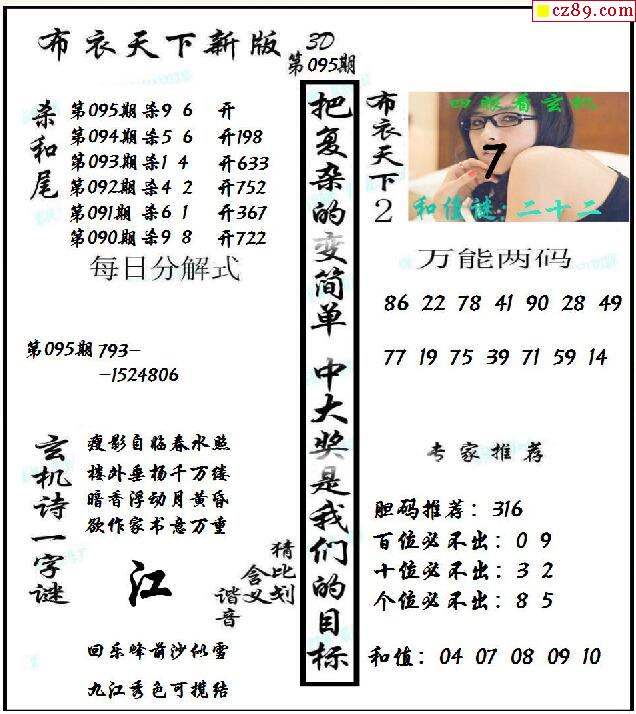 cz89.com
布衣天下新版 3D
第095期
杀和尾
第095期杀9 6 开
第094期杀5 6 开198
第093期杀1 4 开633
第092期杀4 2 开752
第091期杀6 1 开367
第090期杀9 8 开722
每日分解式
第095期 793-
-1524806
玄机诗一字谜
瘦影自临春水照
楼外垂杨千万缕
暗香浮动月黄昏
欲作家书意万重
江
猜比划
含义
谐音
回乐峰前沙似雪
九江秀色可揽结
把复杂的变简单 中大奖是我们的目标
布衣天下2
四眼看玄机
7
和值谜:二十二
万能两码
86 22 78 41 90 28 49
77 19 75 39 71 59 14
专家推荐
胆码推荐:316
百位必不出:0 9
十位必不出:3 2
个位必不出:8 5
和值:04 07 08 09 10